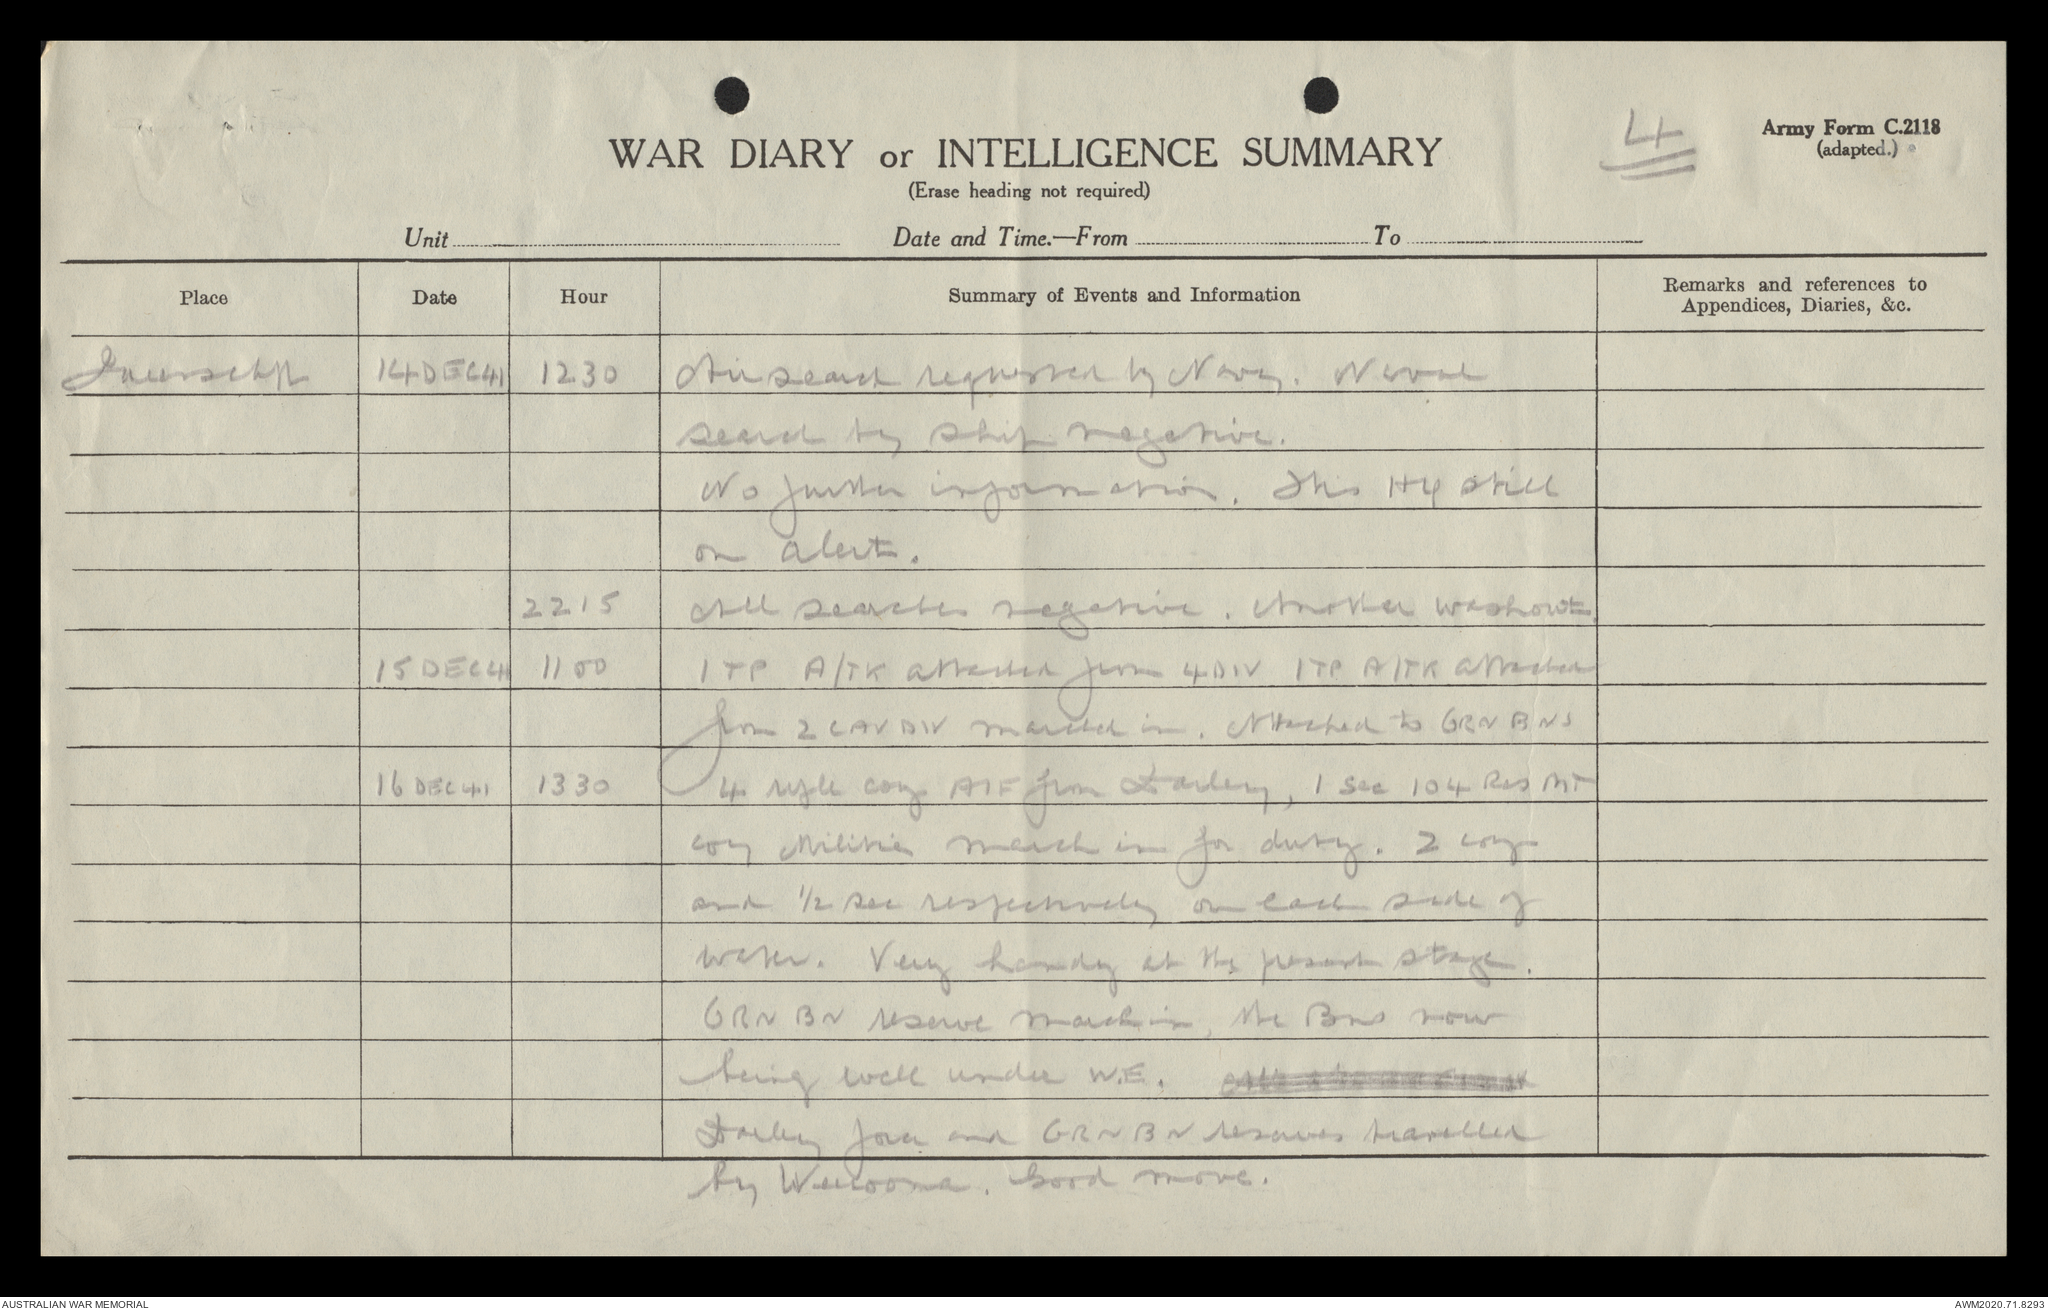 4
Army Form C.2118
(adapted.)
WAR DIARY or INTELLIGENCE SUMMARY
(Erase heading not required)
Unit Date and Time.—From To
Place Date Hour Summary of Events and Information Remarks and references to Appendices, Diaries, &c.
14DEC41 1230 Air search requested by Navy. Naval
search by ship negative.
No further information. This HQ still
on alert.
2215 All searches negative. Another washout.
15DEC41 1100 1 TP A/TK attached from 4DIV 1TP A/TK attached
from 2 CAV DIV marched in. Attached to GRN BNS
16DEC41 1330 4 rifle coys AIF from Darley, 1 sec 104 Res MT
coy Militia march in for duty. 2 coys
and 1/2 sec respectively on each side of
water. Very handy at the present stage.
GRN BN reserve march in, the Bns now
being well under W.E.
Darley force and GRN BN reserves travelled
by Weeroona. Good move.
AUSTRALIAN WAR MEMORIAL
AWM2020.71.8293